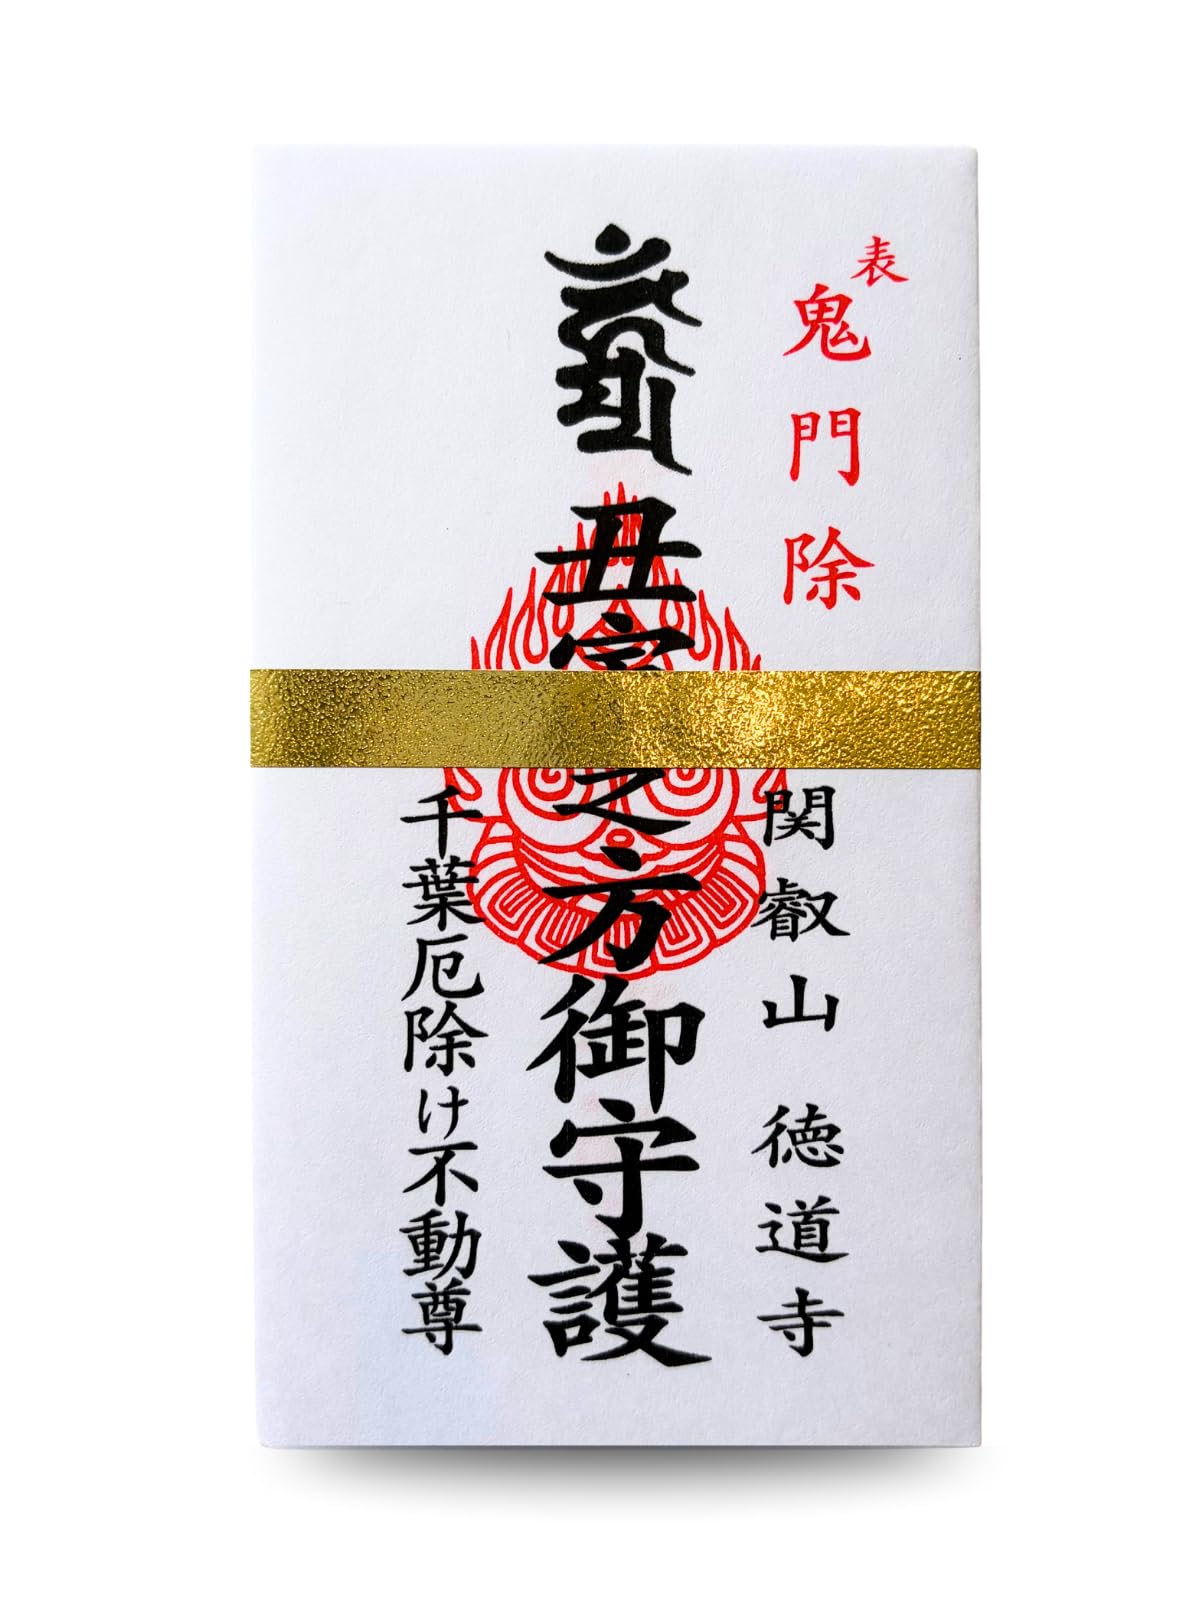 表鬼門除
関叡山 徳道寺
丑寅之方御守護
千葉厄除け不動尊